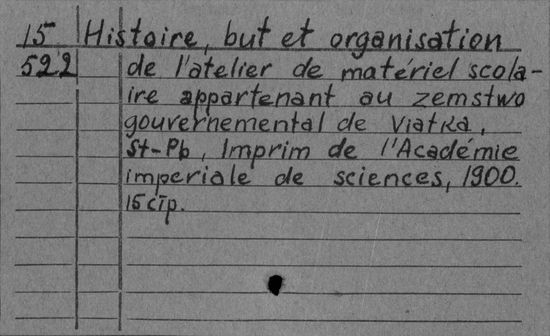 15 Histoire, but et organisation
522 de l'atelier de matériel scola-
ire appartenant au zemstwo
gouvernemental de Viatka,
St-Pb, Imprim de l'Académie
imperiale de sciences, 1900.
15 стр.